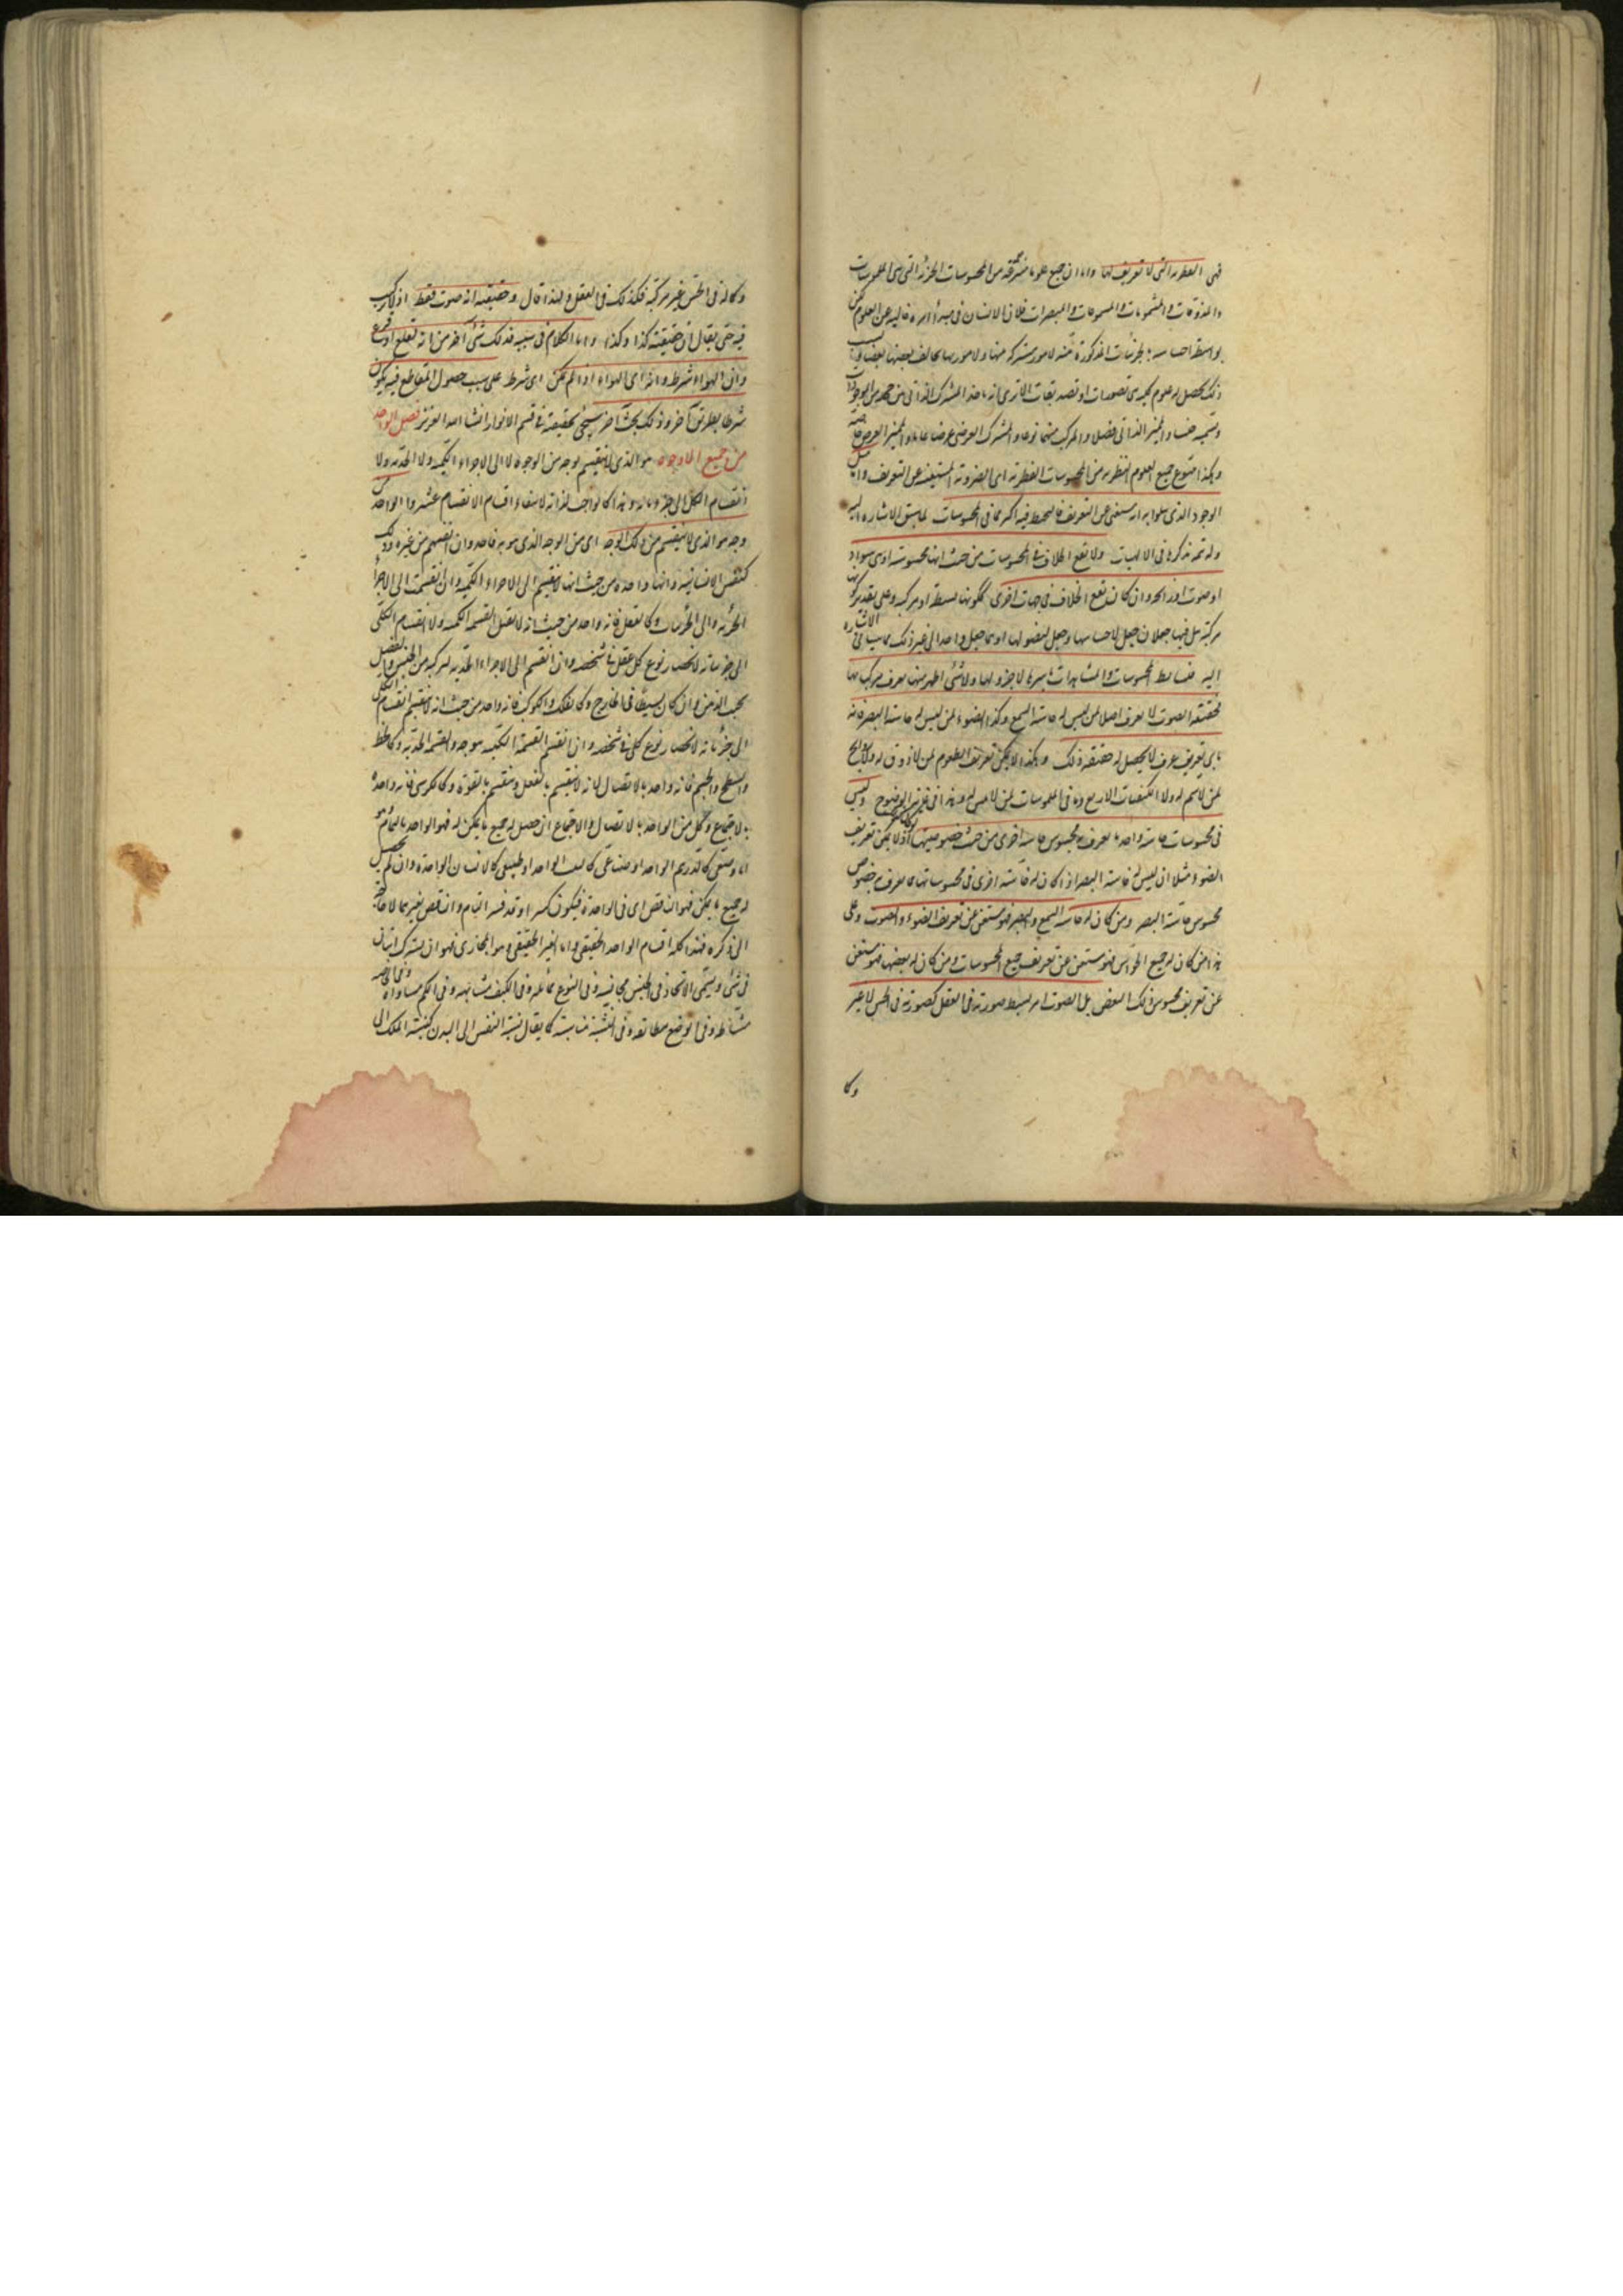 فهى الفطرية التى لا تعريف لها واما ان جميع علومنا منتزعة من المحسوسات الجزئية التى هى الملموسات
والمذوقات والمشمومات والمسموعات والمبصرات فلان الانسان فى مبدأ امره خاليه عن العلوم لكن
بواسطة احساسه بالجزئيات المذكورة يتنبه لامور مشتركة منها ولامور بها يخالف بعضها بعضا
ذلك يحصل له علوم كلية هى تصورات او تصديقات الا ترى انه ياخذ المشترك الذاتى من
ويسميه جنسا والمميز الذاتى فصلا والمركب منهما نوعا والمشترك العرضى عرضا عاما والمميز العرضى خاصة
وهكذا ينتزع جميع العلوم النظرية من المحسوسات الفطرية اى الضرورية المستغنية عن التعريف واما مثل
الوجود الذى مثلوا به انه مستغنى عن التعريف فالتخبط فيه اكثر مما فى المحسوسات لما سبق الاشارة اليه
وله تتمة نذكرها فى الالهيات ولا يقع الخلاف فى المحسوسات من حيث انها محسوسة او هى سواد
او صوت او رائحة وان كان يقع الخلاف فى جهات اخرى ككونها بسيطة او مركبة وعلى تقدير كونها
مركبة هل فيها جعلان جعل لاجناسها وجعل لفصولها او هما جعل واحد الى غير ذلك مما سياتى الاشارة
اليه فبسائط المحسوسات والمشاهدات باسرها لا جزء لها ولا شىء اظهر منها يعرف مركباتها
فحقيقة الصوت لا يعرف اصلا لمن ليس له حاسة السمع وكذا الضوء لمن ليس له حاسة البصر فانه
باى تعريف عرف لا يحصل له حقيقة ذلك وهكذا لا يمكن تعريف الطعوم لمن لا ذوق له ولا الروائح
لمن لا شم له ولا الكيفيات الاربع وما فى الملموسات لمن لا لمس له وهذا فى غاية الوضوح وليس
فى محسوسات حاسة واحدة ما يعرف به محسوس حاسة اخرى من حيث خصوصيتها اذ لا يمكن تعريف
الضوء مثلا ان ليس له حاسة البصر اذا كان له حاسة اخرى فى محسوساتها ما يعرف به خصوص
محسوس حاسة البصر ومن كان له حاسة السمع والبصر فهو مستغن عن تعريف الضوء والصوت وعلى
هذا من كان له جميع الحواس فهو مستغن عن تعريف جميع المحسوسات ومن كان له بعضها فهو مستغن
عن تعريف محسوس ذلك البعض بل الصوت امر بسيط صورته فى العقل كصورته فى الحس لا غير
وكما
وكما انه فى الحس غير مركبة فكذلك فى العقل ولهذا قال وحقيقته انه صوت فقط اذ لا تركيب
فيه حتى يقال ان حقيقته كذا وكذا واما الكلام فى سببه فذلك شىء آخر من انه لقلع او قرع
وان الهواء شرط وانه اى الهواء اذا لم يكن اى شرط على سبب حصول المقاطع فيه يكون
شرطا بطريق آخر وذلك بحث آخر سيجىء تحقيقه فى قسم الانوار انشا الله العزيز فصل الواحد
من جميع الوجوه هو الذى لا ينقسم بوجه من الوجوه لا الى الاجزاء الكمية ولا الحدية ولا
انقسام الكلى الى جزئياته وهذا كالواجب لذاته لانتفاء اقسام الانقسام عنه والواحد من
وجه هو الذى لا ينقسم من ذلك الوجه اى من الوجه الذى هو به واحد وان انقسم من غيره وذلك
كنفس الانسانية فانها واحدة من حيث انها لا تنقسم الى الاجزاء الكمية وان انقسمت الى الاجزاء
الحدية والى الجزئيات وكالعقل فانه واحد من حيث انه لا يقبل القسمة الكمية ولا انقسام الكلى
الى جزئياته لانحصار نوع كل عقل فى شخصه وان انقسم الى الاجزاء الحدية لتركبه من الجنس والفصل
بحسب الذهن وان كان بسيطا فى الخارج وكالفلك والكوكب فانه واحد من حيث انه لا ينقسم انقسام الكلى
الى جزئياته لانحصار نوع كل فى شخصه وان انقسم القسمة الكمية بوجه والقسمة الحدية وكالخط
والسطح والجسم فانه واحد بالاتصال لانه لا ينقسم بالفعل وينقسم بالقوة وكالكرسى فانه واحد
بالاجتماع وكل من الواحد بالاتصال والاجتماع ان حصل له جميع ما يمكن له فهو الواحد بالتمام وهو
اما وضعى كالدرهم الواحد او صناعى كالبيت الواحد او طبيعى كالانسان الواحد وان لم يحصل
له جميع ما يمكن فهو الناقص اى فى الواحدة فيكون كسرا وقد فسر التام والناقص بغير هذا
الى ذكره فهذا كله اقسام الواحد الحقيقى واما الغير الحقيقى وهو المجازى فهو ان يشترك اثنان
فى شىء ويسمى الاتحاد فى الجنس مجانسة وفى النوع مماثلة وفى الكيف مشابهة وفى الكم مساواة
وفى الوضع مطابقة وفى النسبة مناسبة كما يقال نسبة النفس الى البدن كنسبة الملك الى